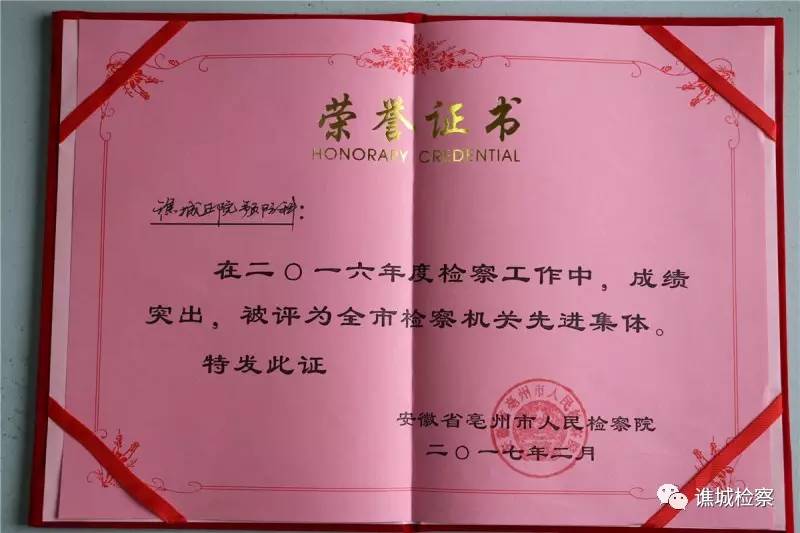 荣誉证书
HONORARY CREDENTIAL
谯城区院预防科：
在二〇一六年度检察工作中，成绩
突出，被评为全市检察机关先进集体。
特发此证
安徽省亳州市人民检察院
二〇一七年二月
谯城检察